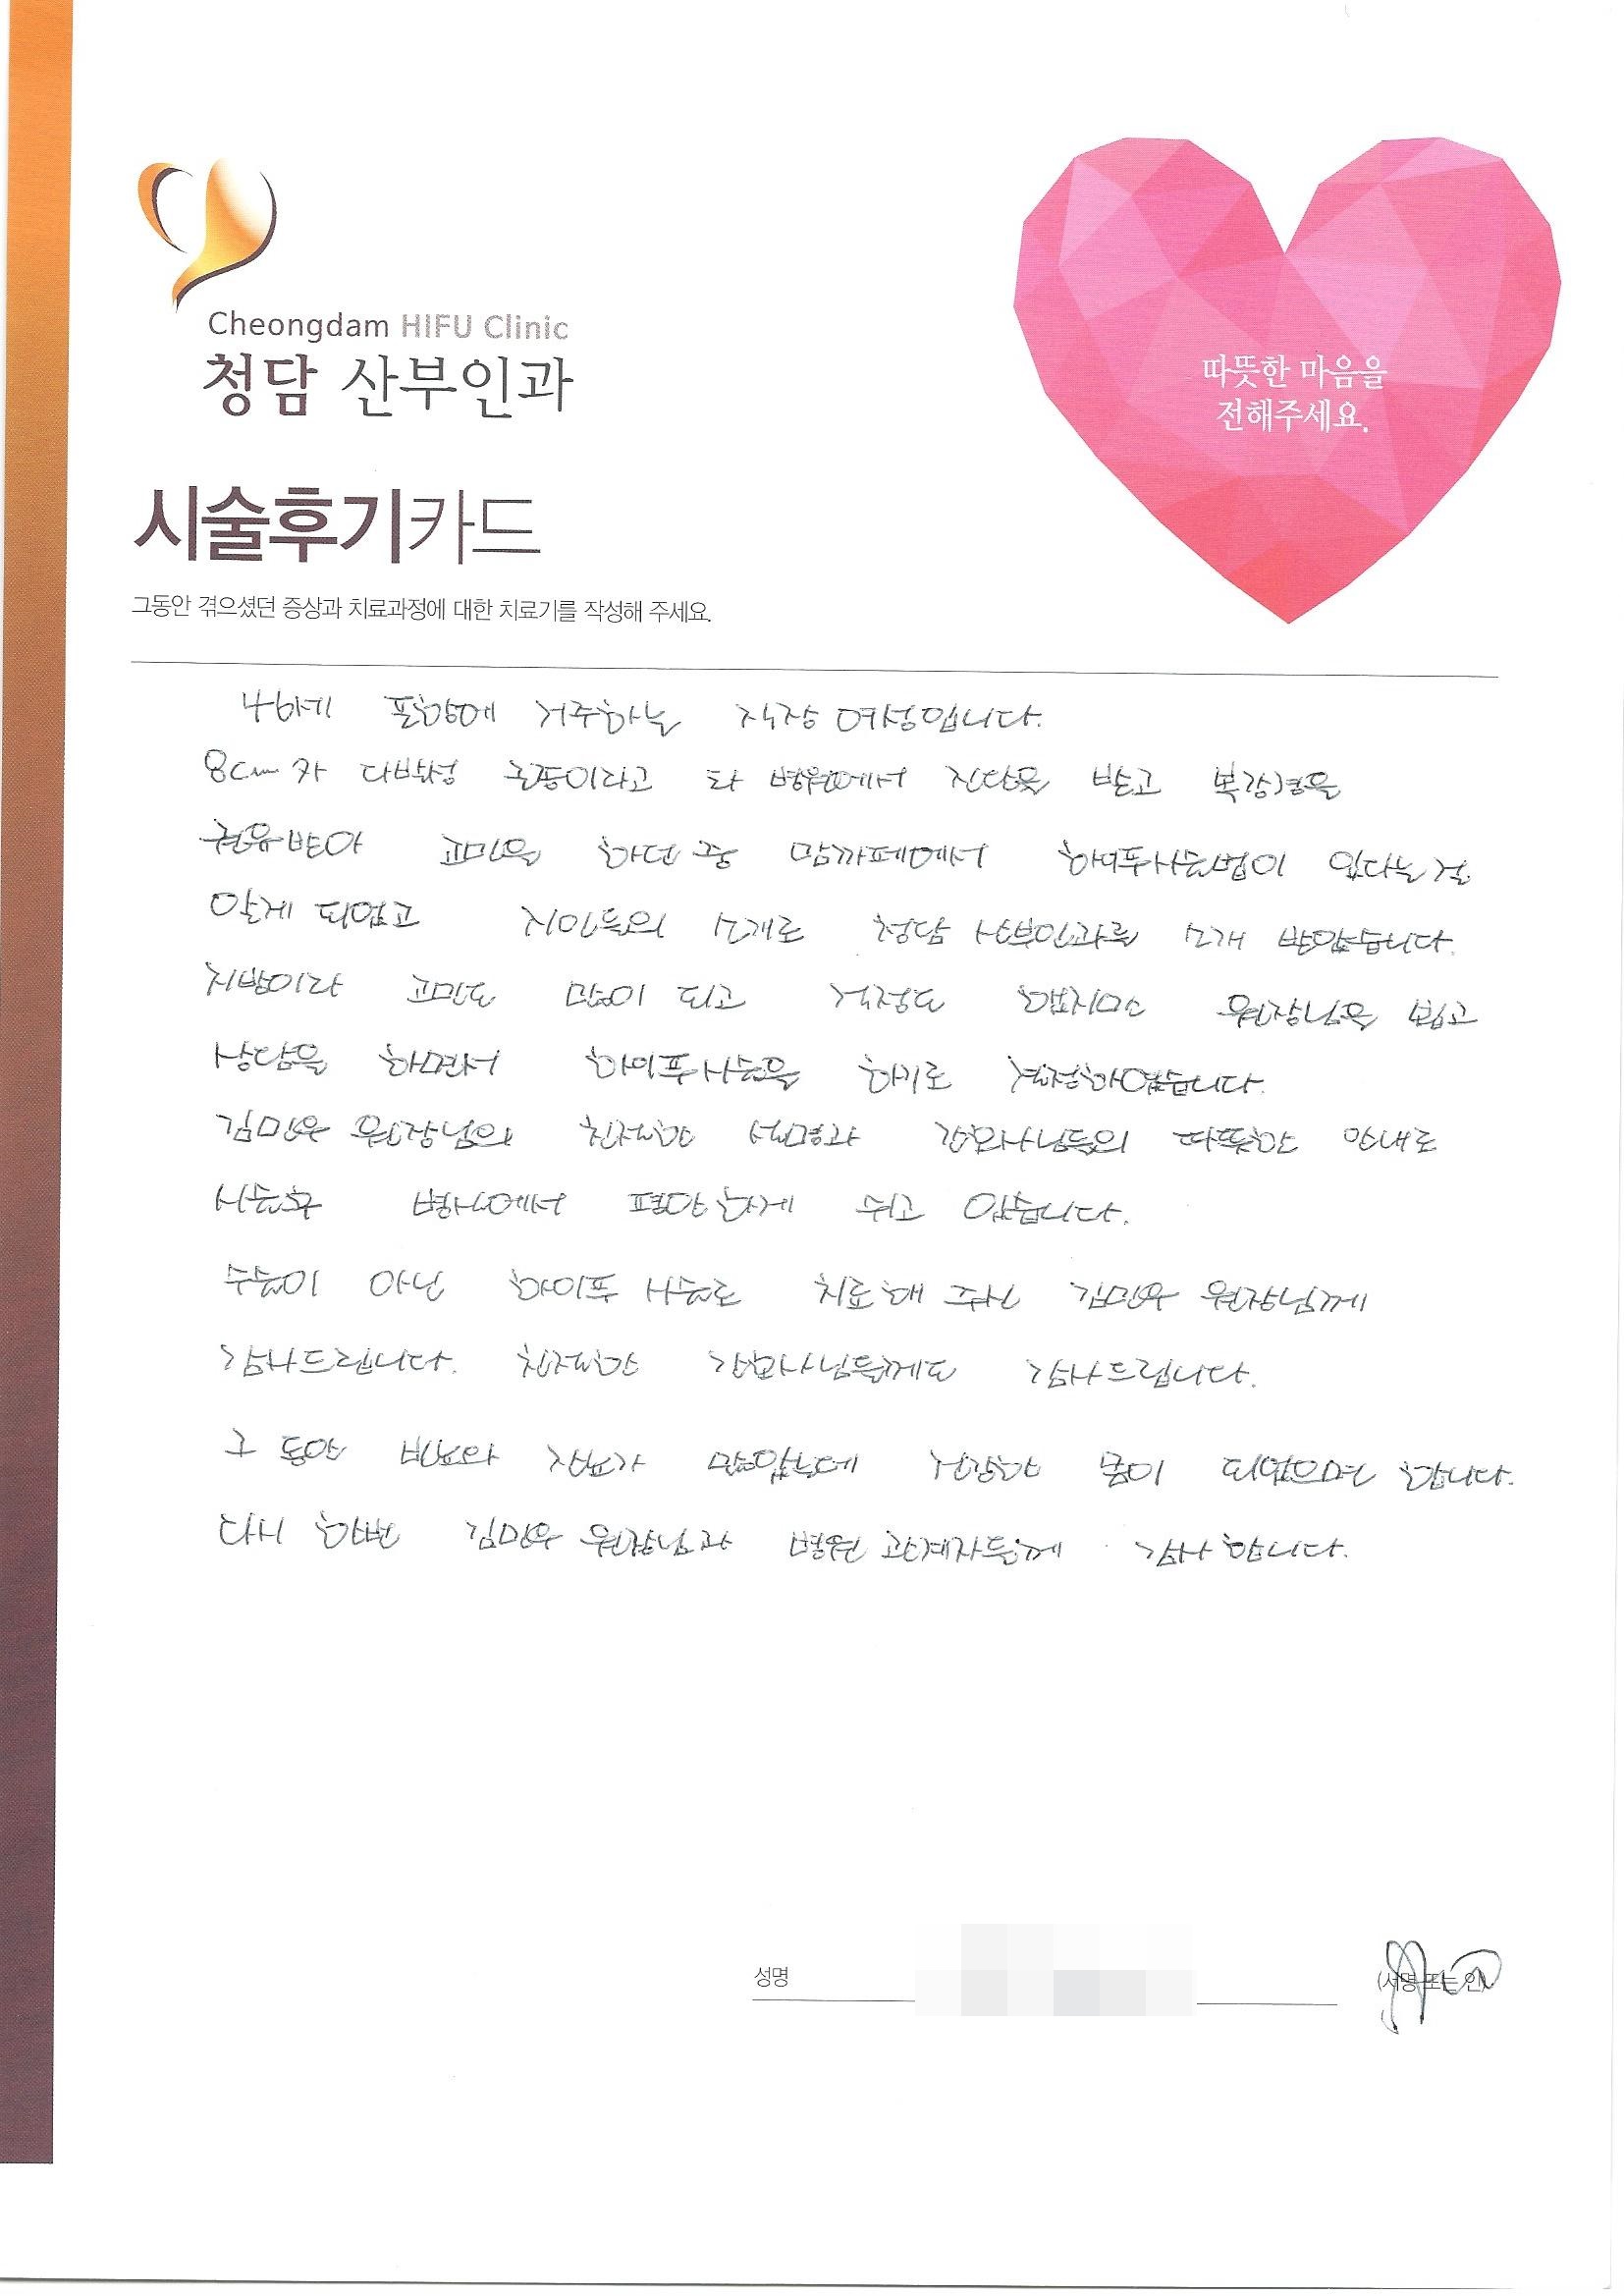 Cheongdam HIFU Clinic
청담 산부인과
따뜻한 마음을
전해주세요.
시술후기카드
그동안 겪으셨던 증상과 치료과정에 대한 치료기를 작성해 주세요.
46세 포항에 거주하는 직장 여성입니다.
8cm가 다발성 근종이라고 타 병원에서 진단을 받고 복강경을
권유받아 고민을 하던 중 맘까페에서 하이푸시술법이 있다는 걸
알게 되었고 지인들의 소개로 청담 산부인과를 소개 받았습니다.
지방이라 고민도 많이 되고 걱정도 했지만 원장님을 뵙고
상담을 하면서 하이푸시술을 하기로 결정하였습니다.
김민우 원장님의 친절한 설명과 간호사님들의 따뜻한 안내로
시술후 병실에서 편안하게 쉬고 있습니다.
수술이 아닌 하이푸 시술로 치료해 주신 김민우 원장님께
감사드립니다. 친절한 간호사님들께도 감사드립니다.
그 동안 빈뇨와 잔뇨가 많았는데 건강한 몸이 되었으면 합니다.
다시 한번 김민우 원장님과 병원 관계자들께 감사합니다.
성명 (서명 또는 인)